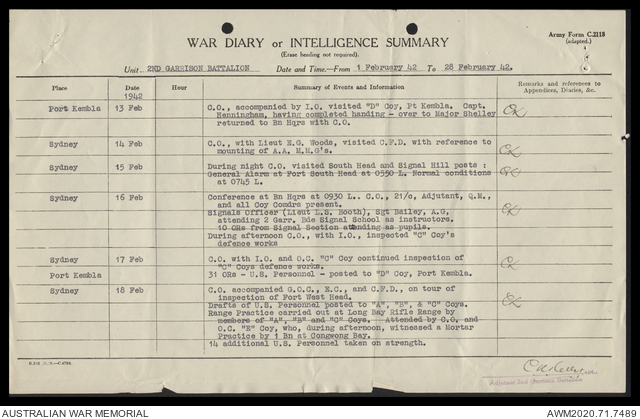 Army Form C.2118
(adapted.)
WAR DIARY or INTELLIGENCE SUMMARY
(Erase heading not required).
Unit 2ND GARRISON BATTALION Date and Time.—From 1 February 42 To 28 February 42.
Place Date Hour Summary of Events and Information Remarks and references to Appendices, Diaries, &c.
1942
Port Kembla 13 Feb C.O., accompanied by I.O. visited "D" Coy, Pt Kembla. Capt.
Henningham, having completed handing - over to Major Shelley
returned to Bn Hqrs with C.O.
Sydney 14 Feb C.O., with Lieut E.G. Woods, visited C.F.D. with reference to
mounting of A.A. M.M.G's.
Sydney 15 Feb During night C.O. visited South Head and Signal Hill posts :
General Alarm at Fort South Head at 0550 L. Normal conditions
at 0745 L.
Sydney 16 Feb Conference at Bn Hqrs at 0930 L.. C.O., 2i/c, Adjutant, Q.M.,
and all Coy Comdrs present.
Signals Officer (Lieut L.S. Booth), Sgt Bailey, A.G,
attending 2 Garr. Bde Signal School as instructors.
10 ORs from Signal Section attending as pupils.
During afternoon C.O., with I.O., inspected "C" Coy's
defence works
Sydney 17 Feb C.O. with I.O. and O.C. "C" Coy continued inspection of
"C" Coys defence works.
Port Kembla 31 ORs - U.S. Personnel - posted to "D" Coy, Port Kembla.
Sydney 18 Feb C.O. accompanied G.O.C., E.C., and C.F.D., on tour of
inspection of Fort West Head.
Drafts of U.S. Personnel posted to "A", "B", & "C" Coys.
Range Practice carried out at Long Bay Rifle Range by
members of "A", "B" and "C" Coys. Attended by C.O. and
O.C. "E" Coy, who, during afternoon, witnessed a Mortar
Practice by 1 Bn at Congwong Bay.
14 additional U.S. Personnel taken on strength.
Adjutant 2nd Garrison Battalion
AUSTRALIAN WAR MEMORIAL
AWM2020.71.7489